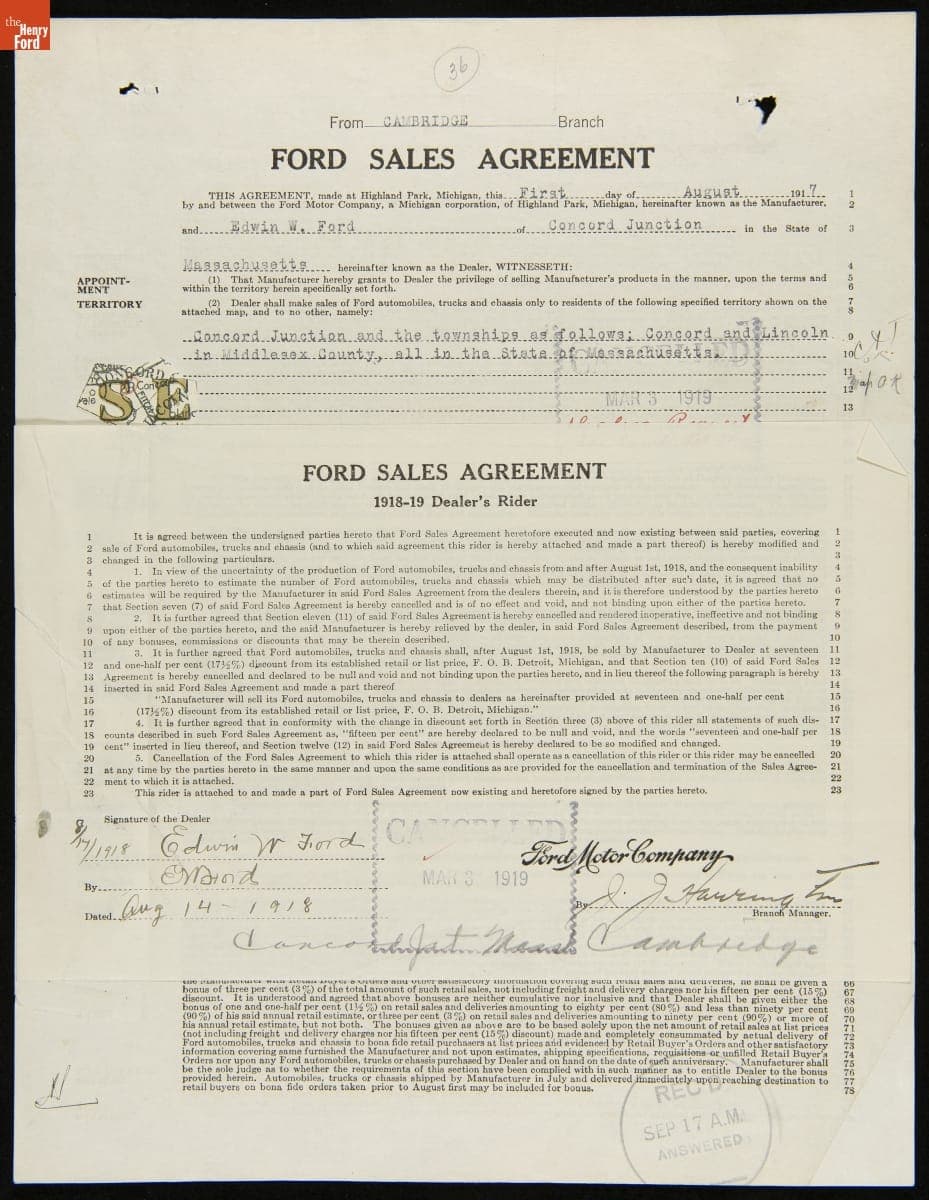 the
Henry
Ford
36
From CAMBRIDGE Branch
FORD SALES AGREEMENT
THIS AGREEMENT, made at Highland Park, Michigan, this First day of August 1917 1
by and between the Ford Motor Company, a Michigan corporation, of Highland Park, Michigan, hereinafter known as the Manufacturer, 2
and Edwin W. Ford of Concord Junction in the State of 3
Massachusetts hereinafter known as the Dealer, WITNESSETH: 4
APPOINT-
MENT
(1) That Manufacturer hereby grants to Dealer the privilege of selling Manufacturer's products in the manner, upon the terms and 5
within the territory herein specifically set forth. 6
TERRITORY
(2) Dealer shall make sales of Ford automobiles, trucks and chassis only to residents of the following specified territory shown on the 7
attached map, and to no other, namely: 8
Concord Junction and the townships as follows; Concord and Lincoln 9
in Middlesex County, all in the State of Massachusetts. 10
11
12 Map OK
13
CANCELLED
MAR 3 1919
FORD SALES AGREEMENT
1918-19 Dealer's Rider
1 It is agreed between the undersigned parties hereto that Ford Sales Agreement heretofore executed and now existing between said parties, covering 1
2 sale of Ford automobiles, trucks and chassis (and to which said agreement this rider is hereby attached and made a part thereof) is hereby modified and 2
3 changed in the following particulars. 3
4 1. In view of the uncertainty of the production of Ford automobiles, trucks and chassis from and after August 1st, 1918, and the consequent inability 4
5 of the parties hereto to estimate the number of Ford automobiles, trucks and chassis which may be distributed after such date, it is agreed that no 5
6 estimates will be required by the Manufacturer in said Ford Sales Agreement from the dealers therein, and it is therefore understood by the parties hereto 6
7 that Section seven (7) of said Ford Sales Agreement is hereby cancelled and is of no effect and void, and not binding upon either of the parties hereto. 7
8 2. It is further agreed that Section eleven (11) of said Ford Sales Agreement is hereby cancelled and rendered inoperative, ineffective and not binding 8
9 upon either of the parties hereto, and the said Manufacturer is hereby relieved by the dealer, in said Ford Sales Agreement described, from the payment 9
10 of any bonuses, commissions or discounts that may be therein described. 10
11 3. It is further agreed that Ford automobiles, trucks and chassis shall, after August 1st, 1918, be sold by Manufacturer to Dealer at seventeen 11
12 and one-half per cent (17½%) discount from its established retail or list price, F. O. B. Detroit, Michigan, and that Section ten (10) of said Ford Sales 12
13 Agreement is hereby cancelled and declared to be null and void and not binding upon the parties hereto, and in lieu thereof the following paragraph is hereby 13
14 inserted in said Ford Sales Agreement and made a part thereof 14
15 "Manufacturer will sell its Ford automobiles, trucks and chassis to dealers as hereinafter provided at seventeen and one-half per cent 15
16 (17½%) discount from its established retail or list price, F. O. B. Detroit, Michigan." 16
17 4. It is further agreed that in conformity with the change in discount set forth in Section three (3) above of this rider all statements of such dis- 17
18 counts described in such Ford Sales Agreement as, "fifteen per cent" are hereby declared to be null and void, and the words "seventeen and one-half per 18
19 cent" inserted in lieu thereof, and Section twelve (12) in said Ford Sales Agreement is hereby declared to be so modified and changed. 19
20 5. Cancellation of the Ford Sales Agreement to which this rider is attached shall operate as a cancellation of this rider or this rider may be cancelled 20
21 at any time by the parties hereto in the same manner and upon the same conditions as are provided for the cancellation and termination of the Sales Agree- 21
22 ment to which it is attached. 22
23 This rider is attached to and made a part of Ford Sales Agreement now existing and heretofore signed by the parties hereto. 23
Signature of the Dealer
8/17/1918 Edwin W Ford
By EWFord
Dated Aug 14 - 1918
CANCELLED
MAR 3 1919
Ford Motor Company
By J. J. Harrington
Branch Manager.
Concord Jct. Mass Cambridge
the Manufacturer with Retail Buyer's Orders and other satisfactory information covering such retail sales and deliveries, he shall be given a 66
bonus of three per cent (3%) of the total amount of such retail sales, not including freight and delivery charges nor his fifteen per cent (15%) 67
discount. It is understood and agreed that above bonuses are neither cumulative nor inclusive and that Dealer shall be given either the 68
bonus of one and one-half per cent (1½%) on retail sales and deliveries amounting to eighty per cent (80%) and less than ninety per cent 69
(90%) of his said annual retail estimate, or three per cent (3%) on retail sales and deliveries amounting to ninety per cent (90%) or more of 70
his annual retail estimate, but not both. The bonuses given as above are to be based solely upon the net amount of retail sales at list prices 71
(not including freight and delivery charges nor his fifteen per cent (15%) discount) made and completely consummated by actual delivery of 72
Ford automobiles, trucks and chassis to bona fide retail purchasers at list prices and evidenced by Retail Buyer's Orders and other satisfactory 73
information covering same furnished the Manufacturer and not upon estimates, shipping specifications, requisitions or unfilled Retail Buyer's 74
Orders nor upon any Ford automobiles, trucks or chassis purchased by Dealer and on hand on the date of such anniversary. Manufacturer shall 75
be the sole judge as to whether the requirements of this section have been complied with in such manner as to entitle Dealer to the bonus 76
provided herein. Automobiles, trucks or chassis shipped by Manufacturer in July and delivered immediately upon reaching destination to 77
retail buyers on bona fide orders taken prior to August first may be included for bonus. 78
REC'D
SEP 17 A.M.
ANSWERED